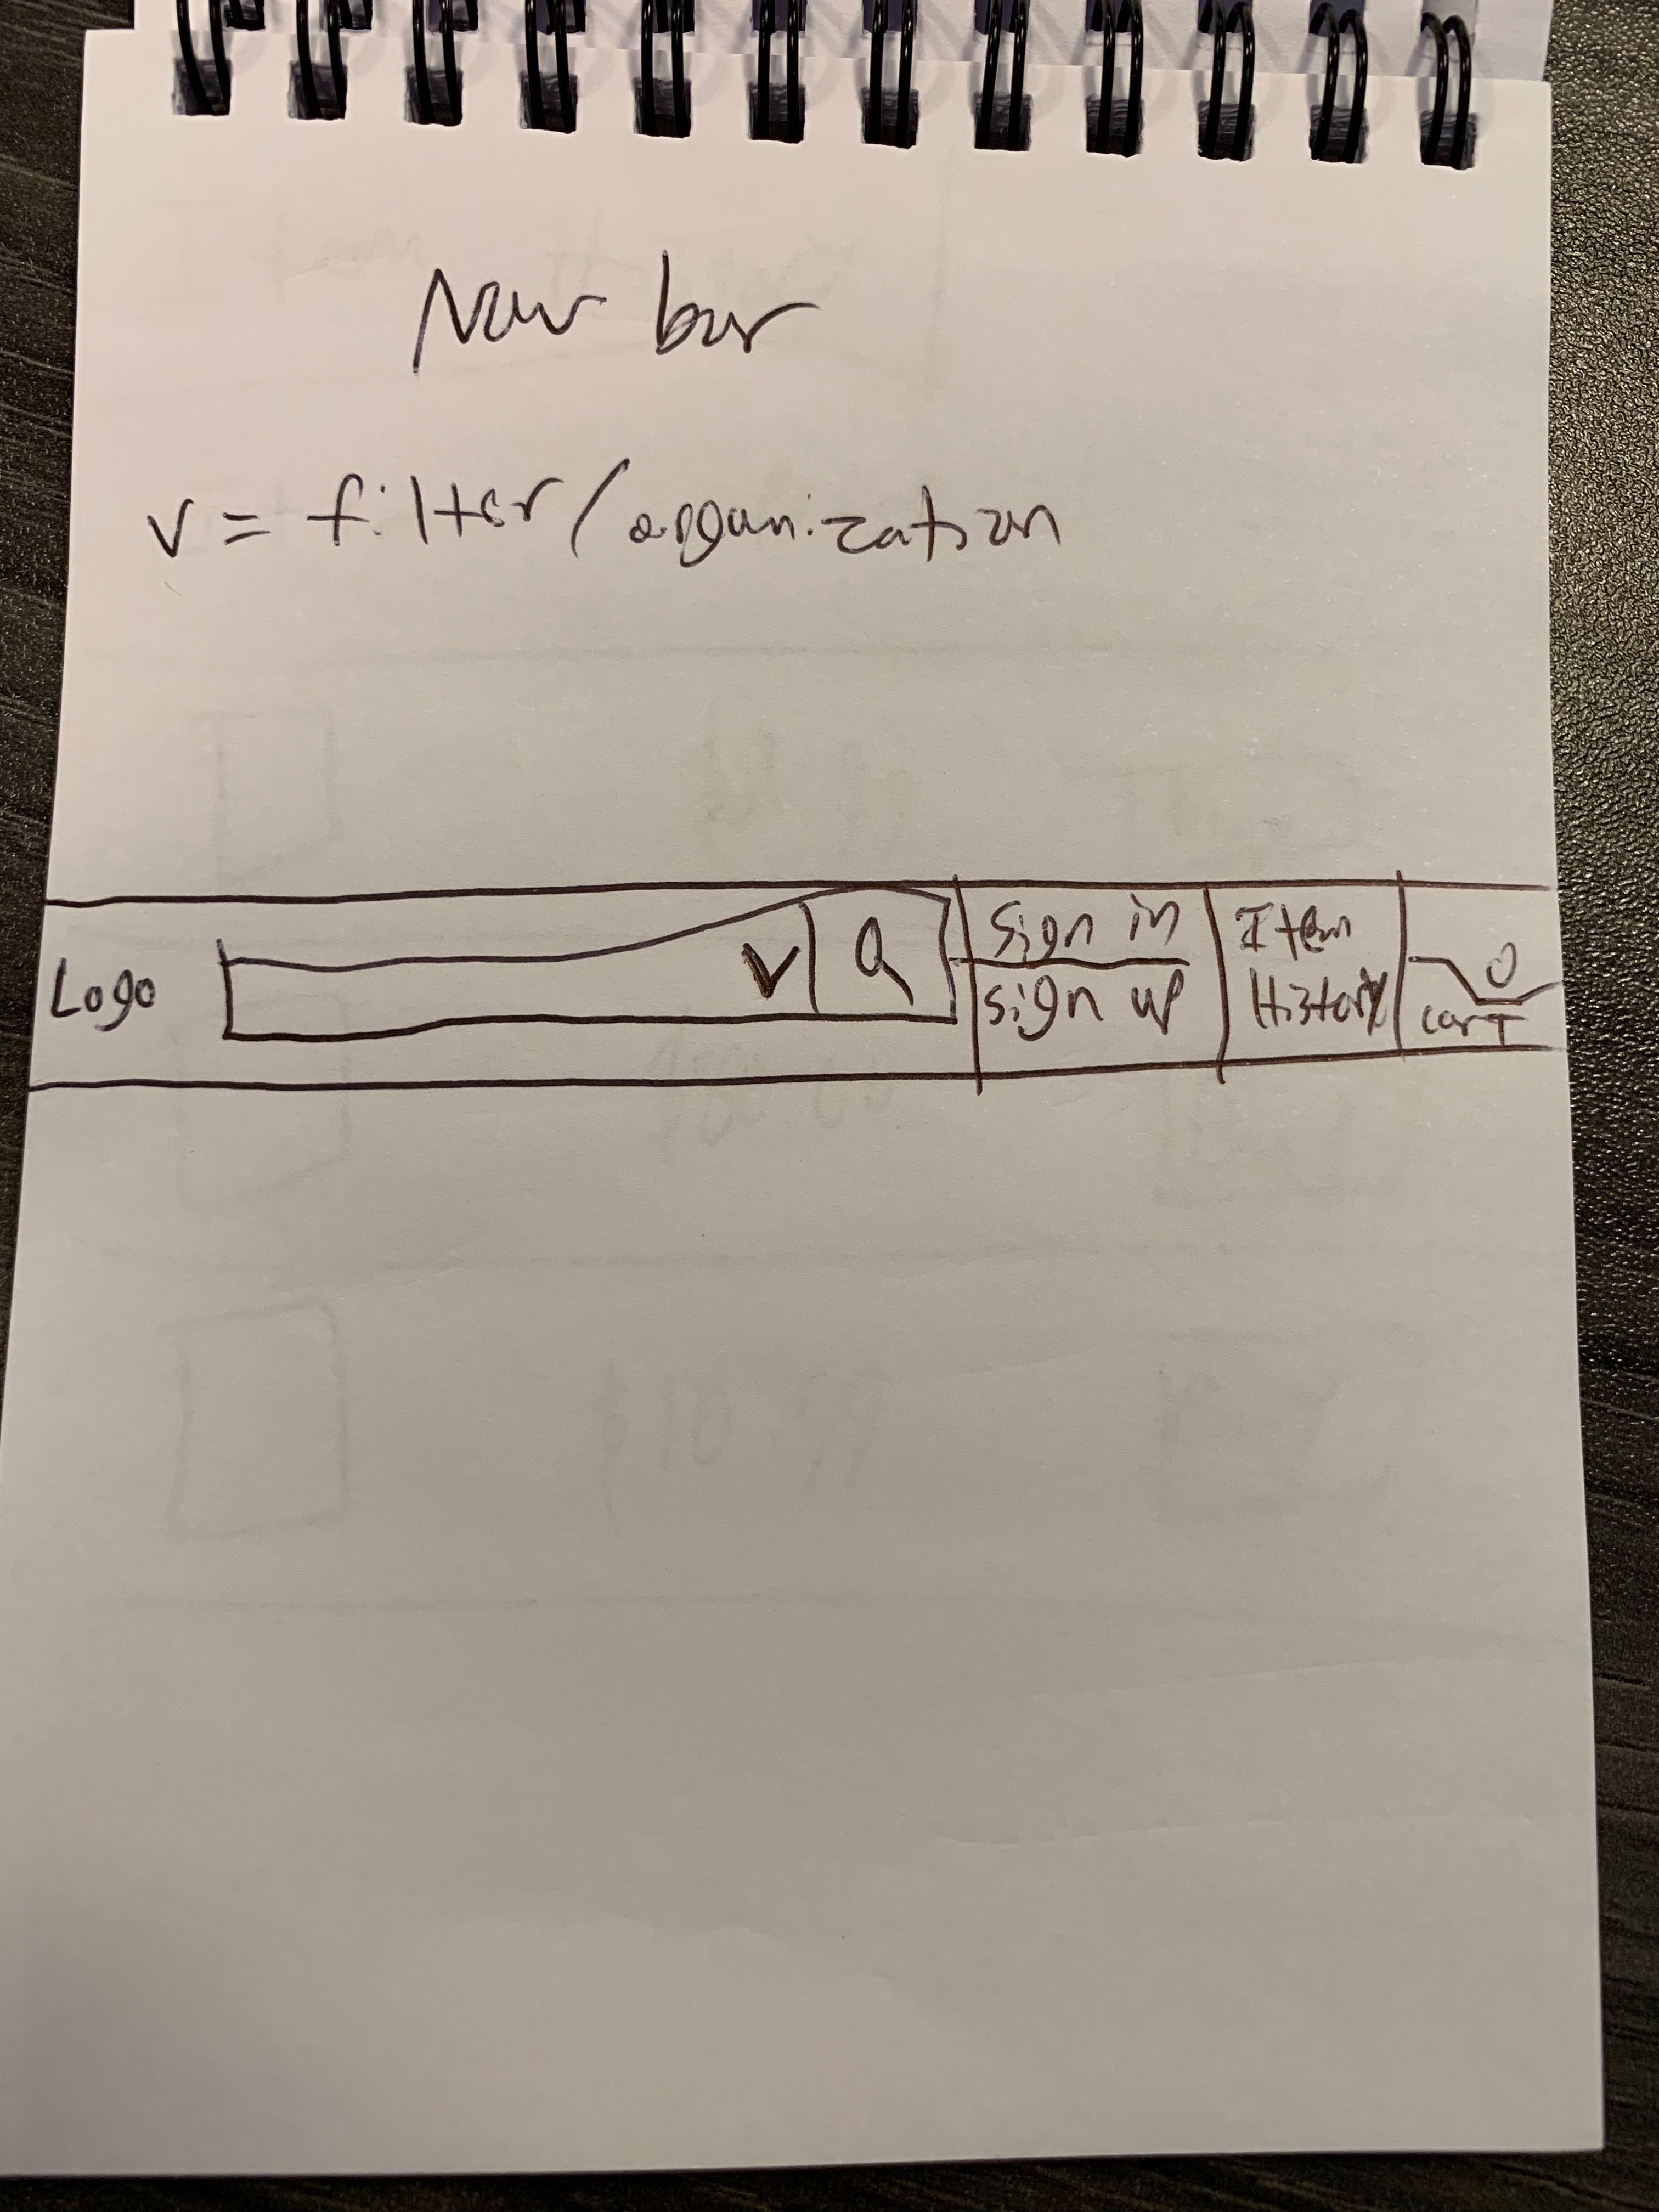 Nav bar
v = filter/organization
Logo
V Q
Sign in
sign up
Item
History
0
cart